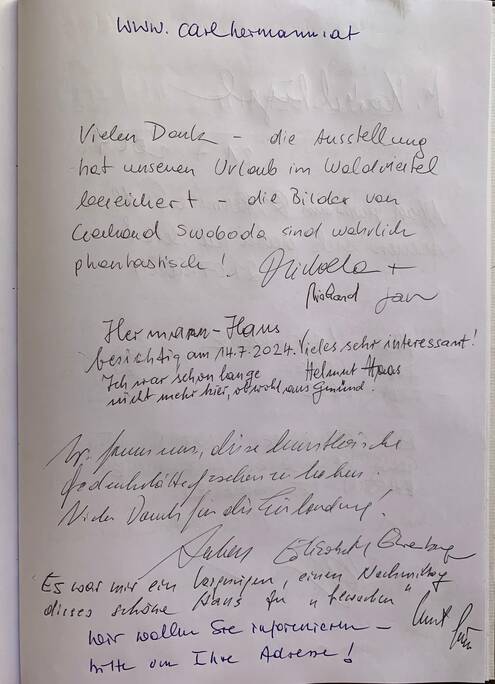 www.carlhermann.at
Vielen Dank – die Ausstellung
hat unseren Urlaub im Waldviertel
bereichert – die Bilder von
Gerhard Swoboda sind wahrlich
phantastisch! +
Richard Jan
Hermann-Haus
besichtig am 14.7.2024. Vieles sehr interessant!
Ich war schon lange Helmut Haas
nicht mehr hier, obwohl aus Gmünd.
Wir freuen uns, diese künstlerische
Gedenkstätte gesehen zu haben.
Vielen Dank für die Einladung!
Elisabeth
Es war mir ein Vergnügen, einen Nachmittag
dieses schöne Haus zu "bewachen"
Wir wollen Sie informieren –
bitte um Ihre Adresse!